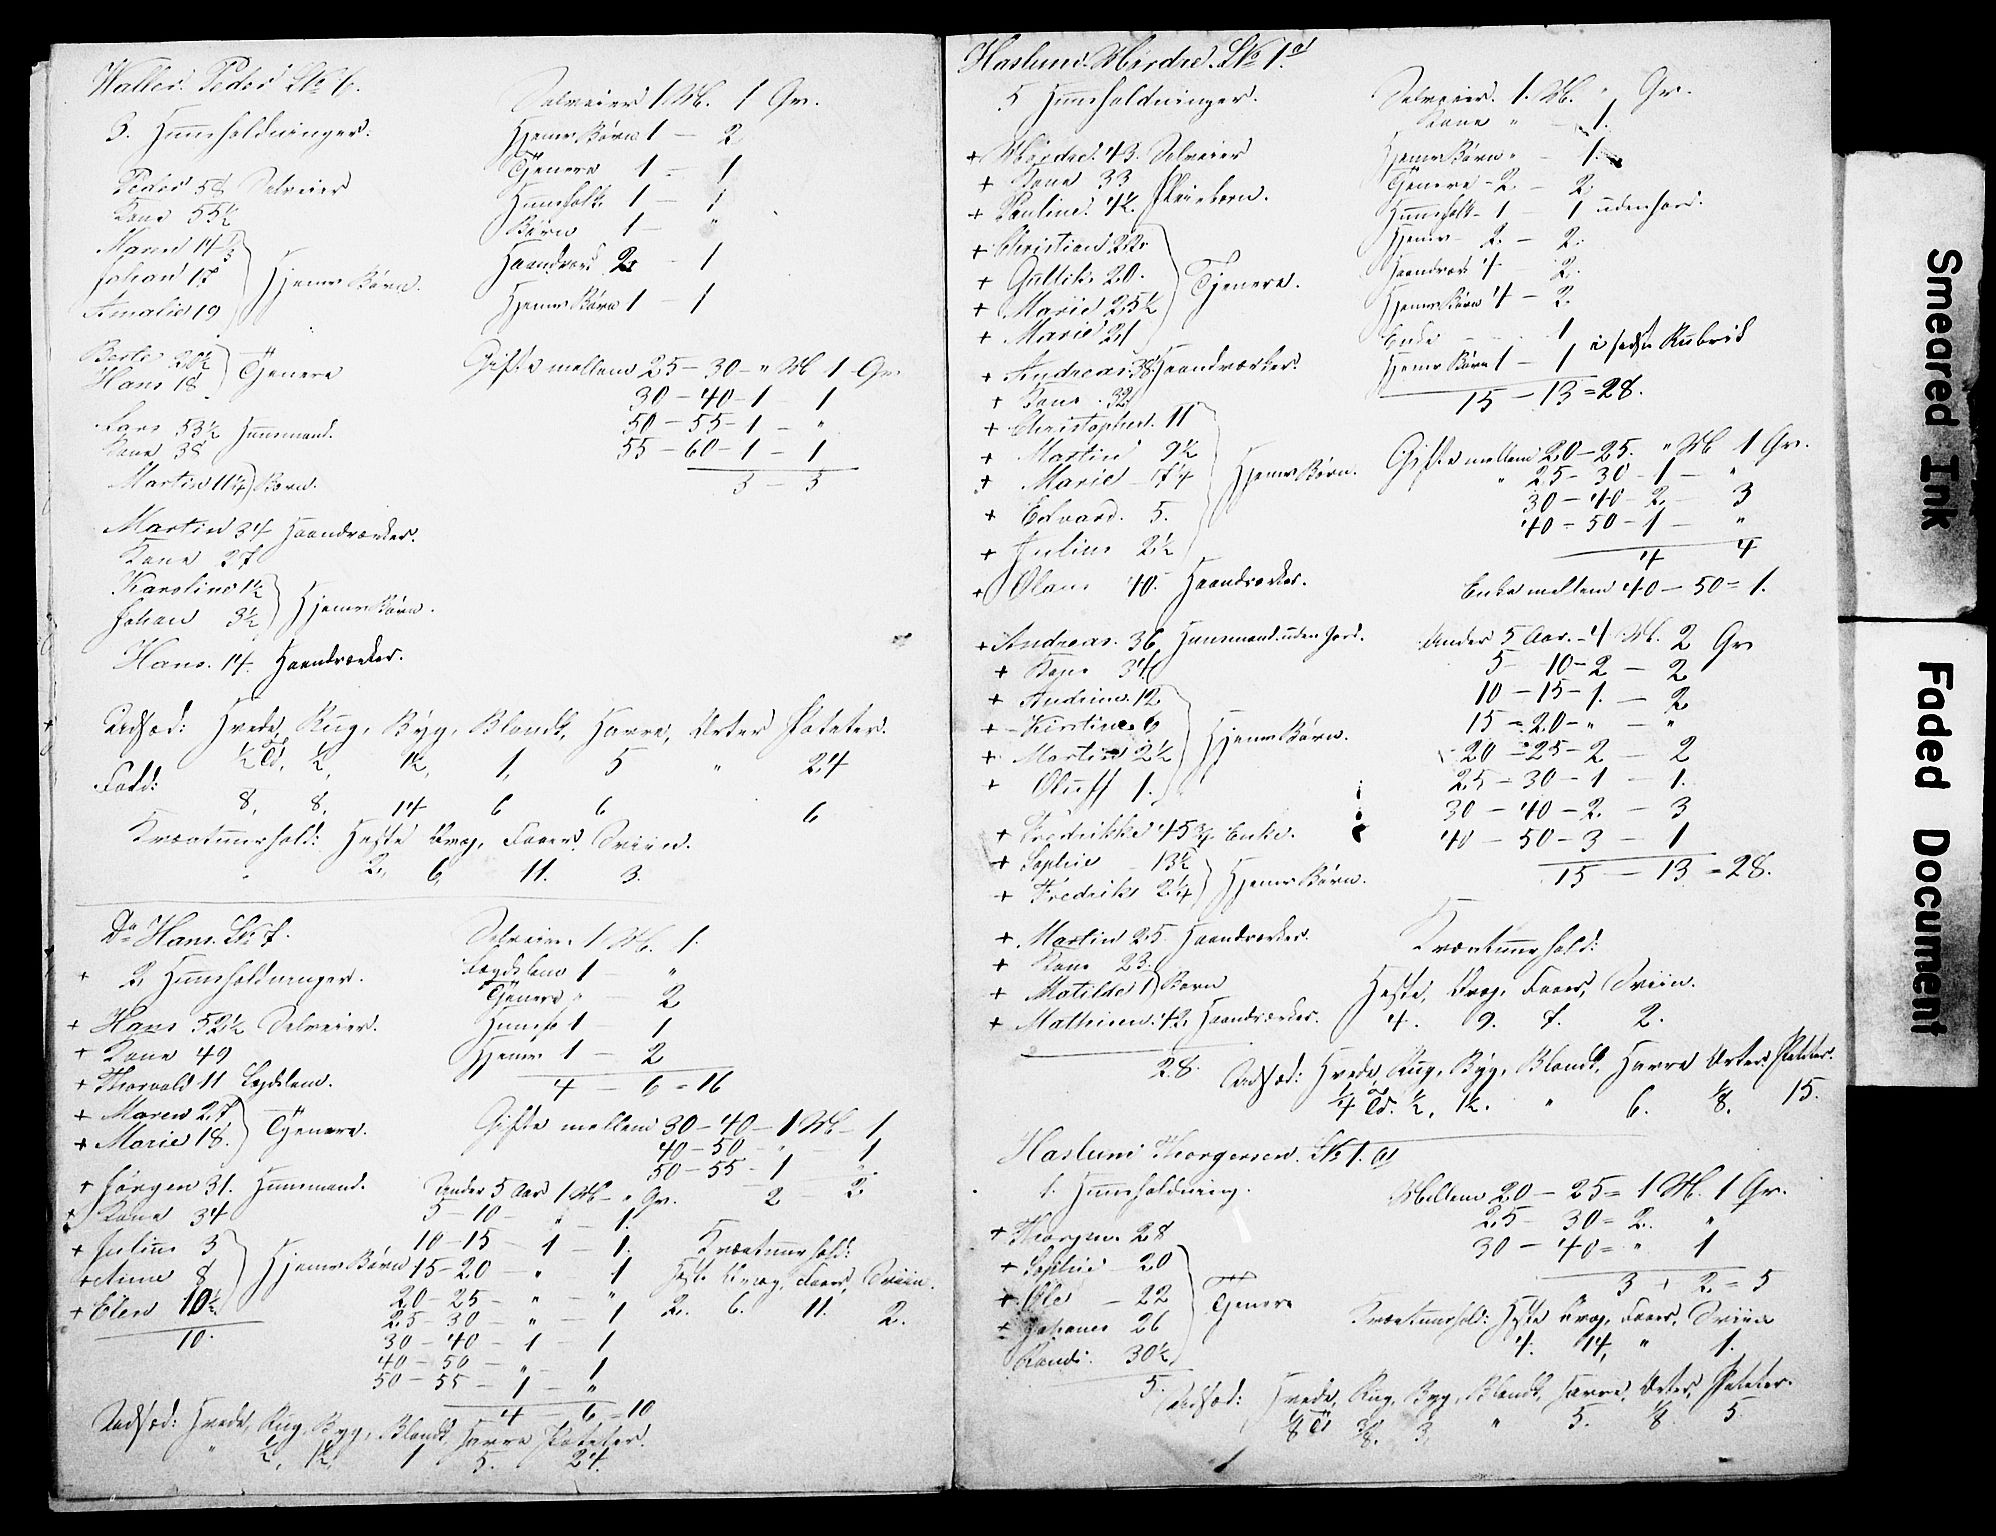 Walles. Peder LNo 6.
3. Huusholdninger.
Peder 58 Selveier
Kone 55½
Maren 14½
Johan 17
Amalie 19
Hjemv Børn.
Berte 20½
Hans 18
Tjenere
Lars 53½ Huusmand.
Kone 38
Martin 11¼ Barn.
Martin 34 Haandværker.
Kone 27
Karoline 1½
Johan 3½
Hjemv Børn.
Hans. 14. Haandværker.
Selveier 1 M. 1 Qv.
Hjemv Børn 1 — 2
Tjenere 1 — 1
Huusfolk 1 — 1
Børn 1 — "
Haandværk 2 — 1
Hjemv Børn 1 — 1
Gifte mellem 25 — 30 — " M 1 Qv.
30 — 40 — 1 — 1
50 — 55 — 1 — "
55 — 60 — 1 — 1
3 — 3
Udsæd: Hvede, Rug, Byg, Blandk, Havre, Erter Poteter.
¼ Td, ½, 1½, 1, 5 " 24
Fold:
8, 8, 14 6 6 6
Kreaturhold: Heste Qvæg, Faarer, Sviin.
2, 6, 11. 3.
Do Hans. LNo 7.
+ 2 Huusholdninger.
+ Hans 52½ Selveier.
+ Kone 49
+ Thorvald 11 Lægdslem.
+ Maren 27
+ Marie 18.
Tjenere.
+ Jørgen 31. Huusmand.
+ Kone 34
+ Julius 3
+ Anne 8
+ Elen 10½
Hjemv Børn
10.
Selveier 1 M. 1.
Lægdslem 1 — "
Tjenere " — 2
Huusf 1 — 1
Hjemv 1 — 2
4 — 6 = 16
Gifte mellem 30 — 40 — 1 M — 1
40 — 50 — " — 1
50 — 55 — 1 "
2 2.
Under 5 Aar 1 M — " Qv.
5 — 10 — " — 1.
10 — 15 — 1 — 1.
15 — 20 — " 1
20 — 25 — " — "
25 — 30 — " — 1
30 — 40 — 1 — 1
40 — 50 — " — 1
50 — 55 — 1 — "
4 6 = 10
Kreaturhold:
Hest. Qvæg, Faarer, Sviin.
2. 6. 11. 2.
Udsæd: Hvede, Rug, Byg, Blandk Havre Poteter.
" ½, 1½, 1 5. 24.
Haslum. Mördre. LNo 1.a
5 Huusholdninger.
+ Mördre. 43. Selveier
+ Kone 33
+ Pauline. 4½. Pleiebarn.
+ Christian 22.
+ Guttik. 20.
+ Marie 25½
+ Marie 21
Tjenere.
+ Andreas. 38 Haandværker.
+ Kone . 32
+ Christopher. 11
+ Martin 9½
+ Marie 7¼
+ Edvard. 5.
+ Julius 2½
Hjemv Børn.
+ Olaus 40. Haandværker.
+ Andreas. 36 Huusmand uden Jord.
+ Kone 34
+ Andrine 12
+ Kirstine 6
+ Martin 2½
+ Oluff 1.
Hjemv Børn.
+ Fredrikke 45¾ Enke.
+ Sophie 13½
+ Fredrik 2¼
Hjemv Børn.
+ Martin 25. Haandværker.
+ Kone 23.
+ Matilde 1 Barn
+ Mathisen. 42. Haandværker.
28.
Selveier. 1. M. " Qv.
Kone " — 1.
Hjemv Børn " — 1.
Tjenere 2 — 2
Huusfolk 1 — 1 uden Jord.
Hjemv 2 — 2.
Haandværk 4 — 2.
Hjemv Børn 4 — 2.
Enke — 1
Hjemv Børn 1 — 1 i sidste Rubrik
15 — 13 = 28.
Gifte mellem 20 — 25. " M 1 Qv.
" 25 — 30 — 1 — "
30 — 40 — 2 — 3
40 — 50 — 1 — "
4 4
Enke mellem 40 — 50 = 1.
Under 5 Aar. — 4 M. 2 Qv
5 — 10 — 2 — 2
10 — 15 — 1. — 2
15 — 20 — " — "
20 — 25 — 2 — 2
25 — 30 — 1 — 1.
30 — 40 — 2. — 3
40 — 50 — 3 — 1
15 — 13 = 28.
Kreaturhold:
Heste, Qvæg, Faarer, Sviin.
4. 9. 7. 2.
Udsæd: Hvede, Rug, Byg, Blandk, Havre Erter Poteter.
¼ Td. ½, 1½. " 6. ⅛. 15.
Haslum Thorgersen. LNo 1. a
1. Huusholdning.
+ Thorger. 28
+ Sophie 20
+ Ole — 22
+ Johanes 26
Randi. 30½
Tjenere
5.
Mellem 20 — 25 = 1 M. 1 Qv.
25 — 30 = 2. "
30 — 40 = " 1
3 + 2 = 5
Kreaturhold: Heste Qvæg, Faarer, Sviin
4. 14, " 1.
Udsæd: Hvede, Rug, Byg, Blandk, Havre, Erter, Poteter.
⅛ Td ⅜. 3. " 5. ⅛. 5.
Smeared Ink
Faded Document